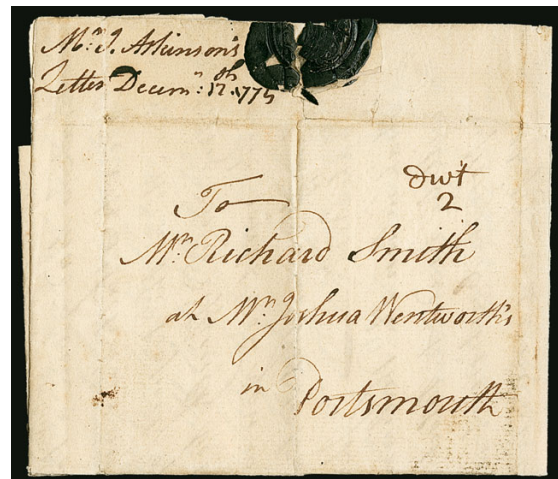 Mr. J. Atkinson's
Letter Decemr: 17th 1775
dwt
2
To
Mr. Richard Smith
at Mr. Joshua Wentworth's
in Portsmouth